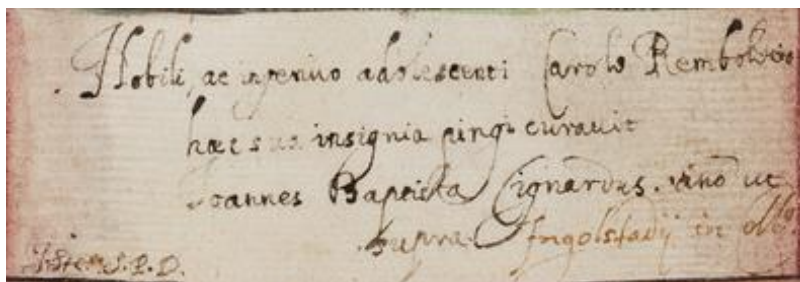 Nobili, ac ingenuo adolescenti Carolo Remboldio
haec sua insignia pingi curavit
Joannes Baptista Cignardus. ut
supra. Ingolstadij in
S.P.D.